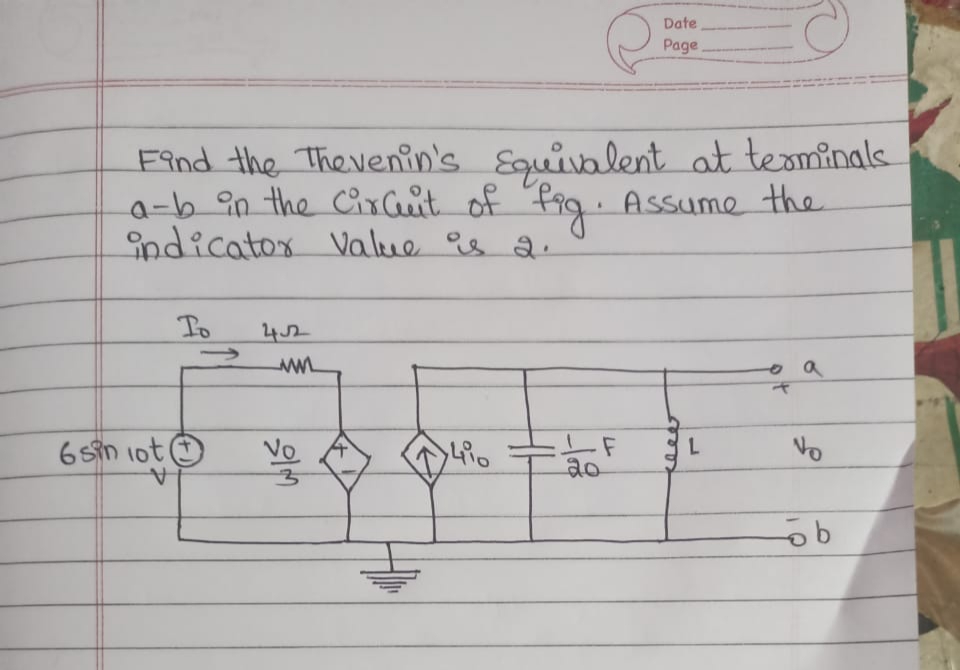 Date
Page
Find the Thevenin's Equivalent at terminals
a-b in the Circuit of fig. Assume the
indicator Value is 2.
I₀ 4Ω
a
+
6sin 10t V + V₀/3 + - 4i₀ 1/20 F L V₀
- b